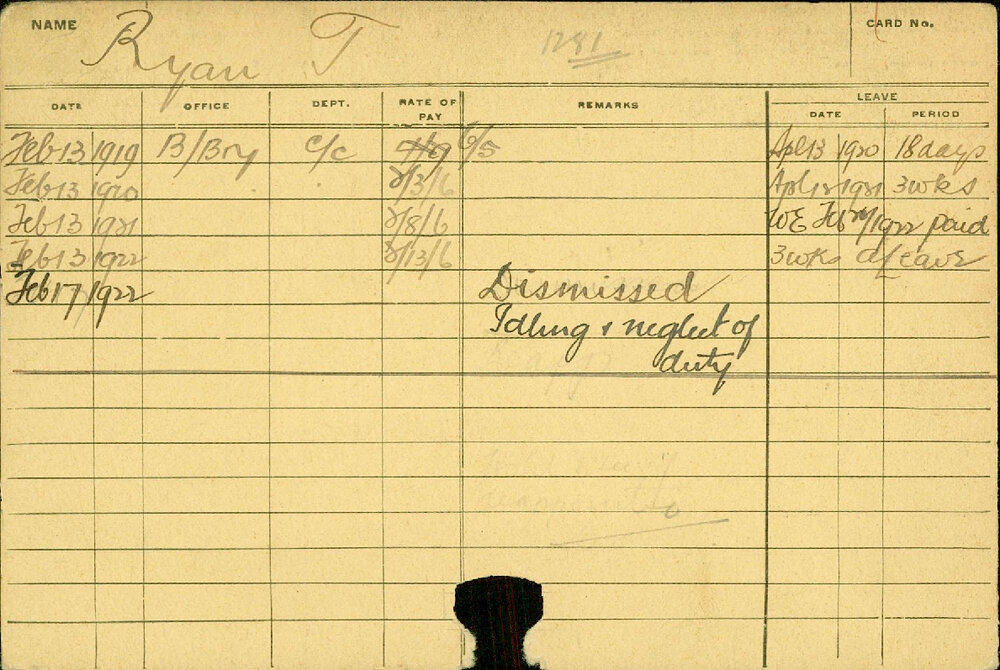 NAME Ryan T 1281 CARD No.
LEAVE
DATE OFFICE DEPT. RATE OF PAY REMARKS DATE PERIOD
Feb 13 1919 B/Bry C/C 6/5 Apl 13 1920 18 days
Feb 13 1920 2/3/6 Apl 12 1921 3 wks
Feb 13 1921 2/8/6 WE Feb 1922 paid
Feb 13 1922 2/13/6 3 wks a/leave
Feb 17 1922 Dismissed
Idling & neglect of
duty